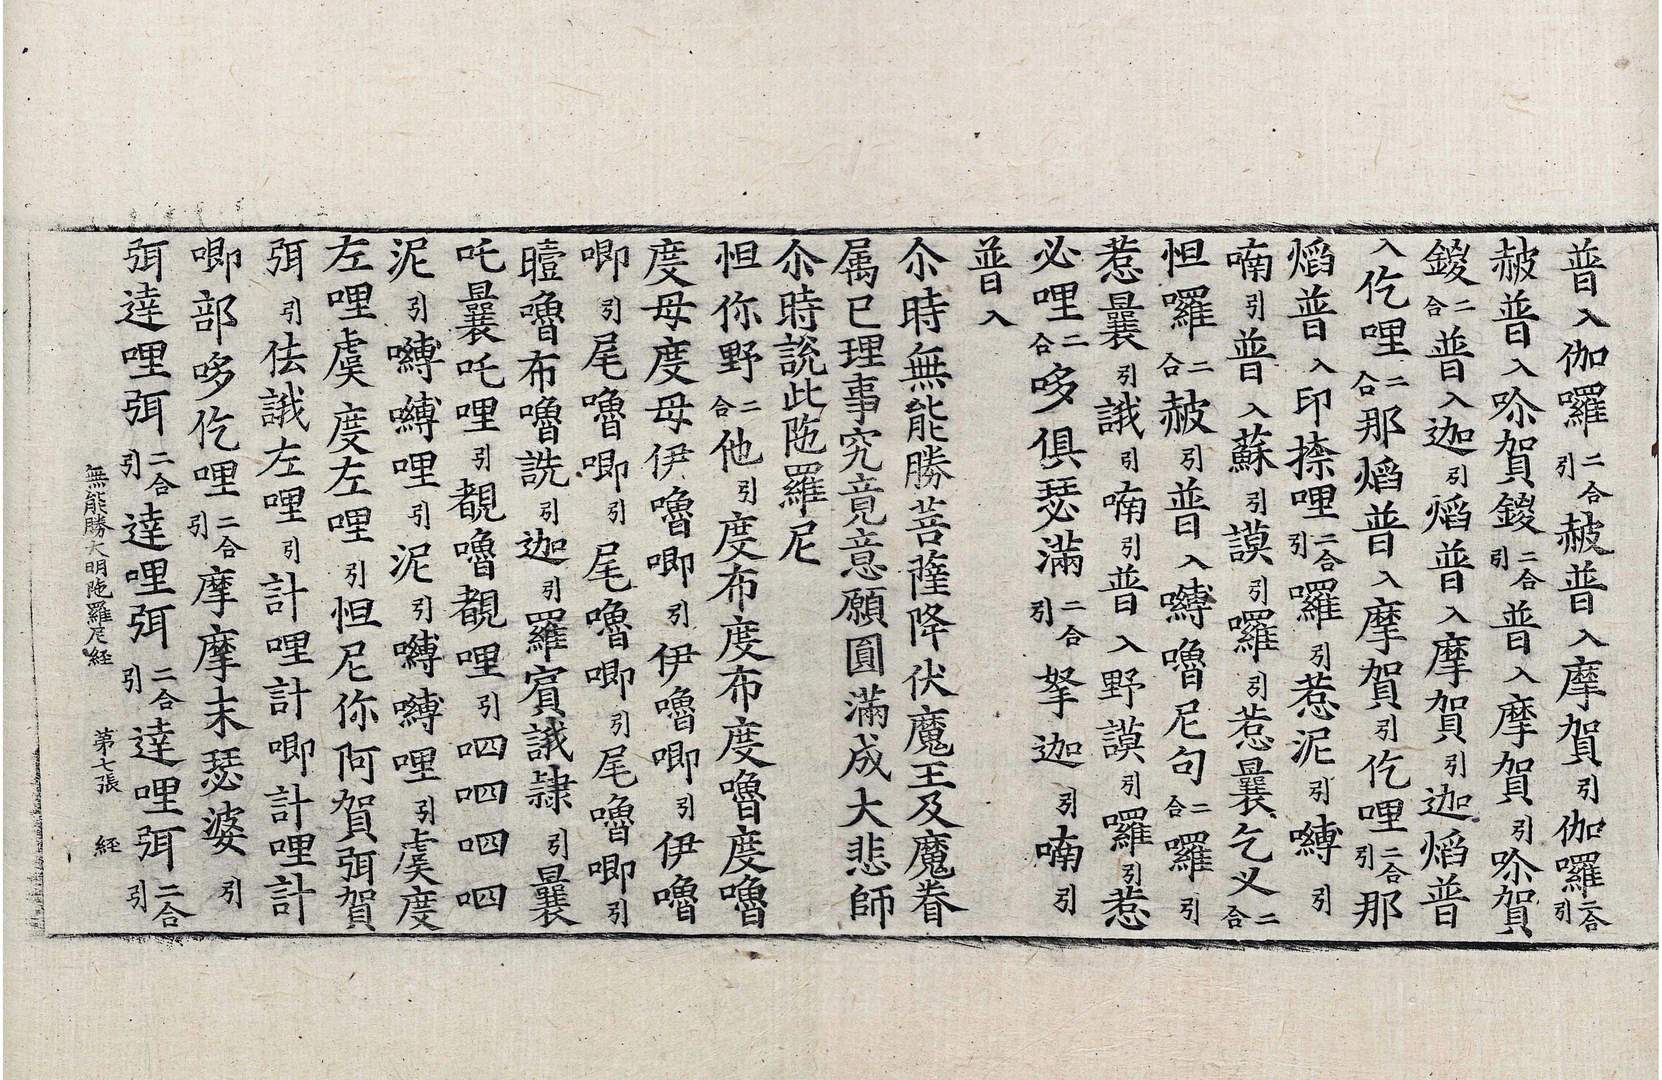 普入伽囉二合引赧普入摩賀引伽囉二合引
赧普入唥賀鑁二合引普入摩賀引唥賀
鑁二合普入迦引焰普入摩賀引迦焰普
入仡哩二合那焰普入摩賀引仡哩二合引那
焰普入印捺哩二合引囉引惹泥引嚩引
喃引普入蘇引謨引囉引惹曩乞义二合
怛囉二合赧引普入嚩嚕尼句二合囉引
惹曩引誐引喃引普入野謨引囉引惹
必哩二合哆俱瑟滿二合引拏迦引喃引
普入
尒時無能勝菩薩降伏魔王及魔眷
属已理事究竟意願圓滿成大悲師
尒時說此陁羅尼
怛你野二合他引度布度布度嚕度嚕
度母度母伊嚕唧引伊嚕唧引伊嚕
唧引尾嚕唧引尾嚕唧引尾嚕唧引
曀嚕布嚕詵引迦引羅賓誐隸引曩
吒曩吒哩引覩嚕覩哩引呬呬呬呬
泥引嚩嚩哩引泥引嚩嚩哩引虞度
左哩虞度左哩引怛尼你阿賀弭賀
弭引佉誐左哩引計哩計唧計哩計
唧部哆仡哩二合引摩摩末瑟婆引
弭達哩弭二合引達哩弭二合引達哩弭二合引
無能勝大明陁羅尼經 第七張 經